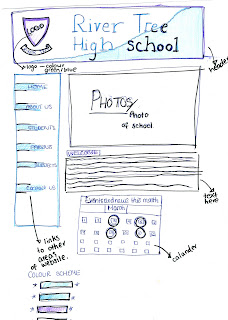 LOGO
River Tree
High school
header
logo - colour
green/blue
HOME
ABOUT US
STUDENTS
PHOTOS/
Photo
of school
WELCOME
Contact us
text
here
Events and news this month
Month
links
to other
areas of
website.
calander
COLOUR SCHEME